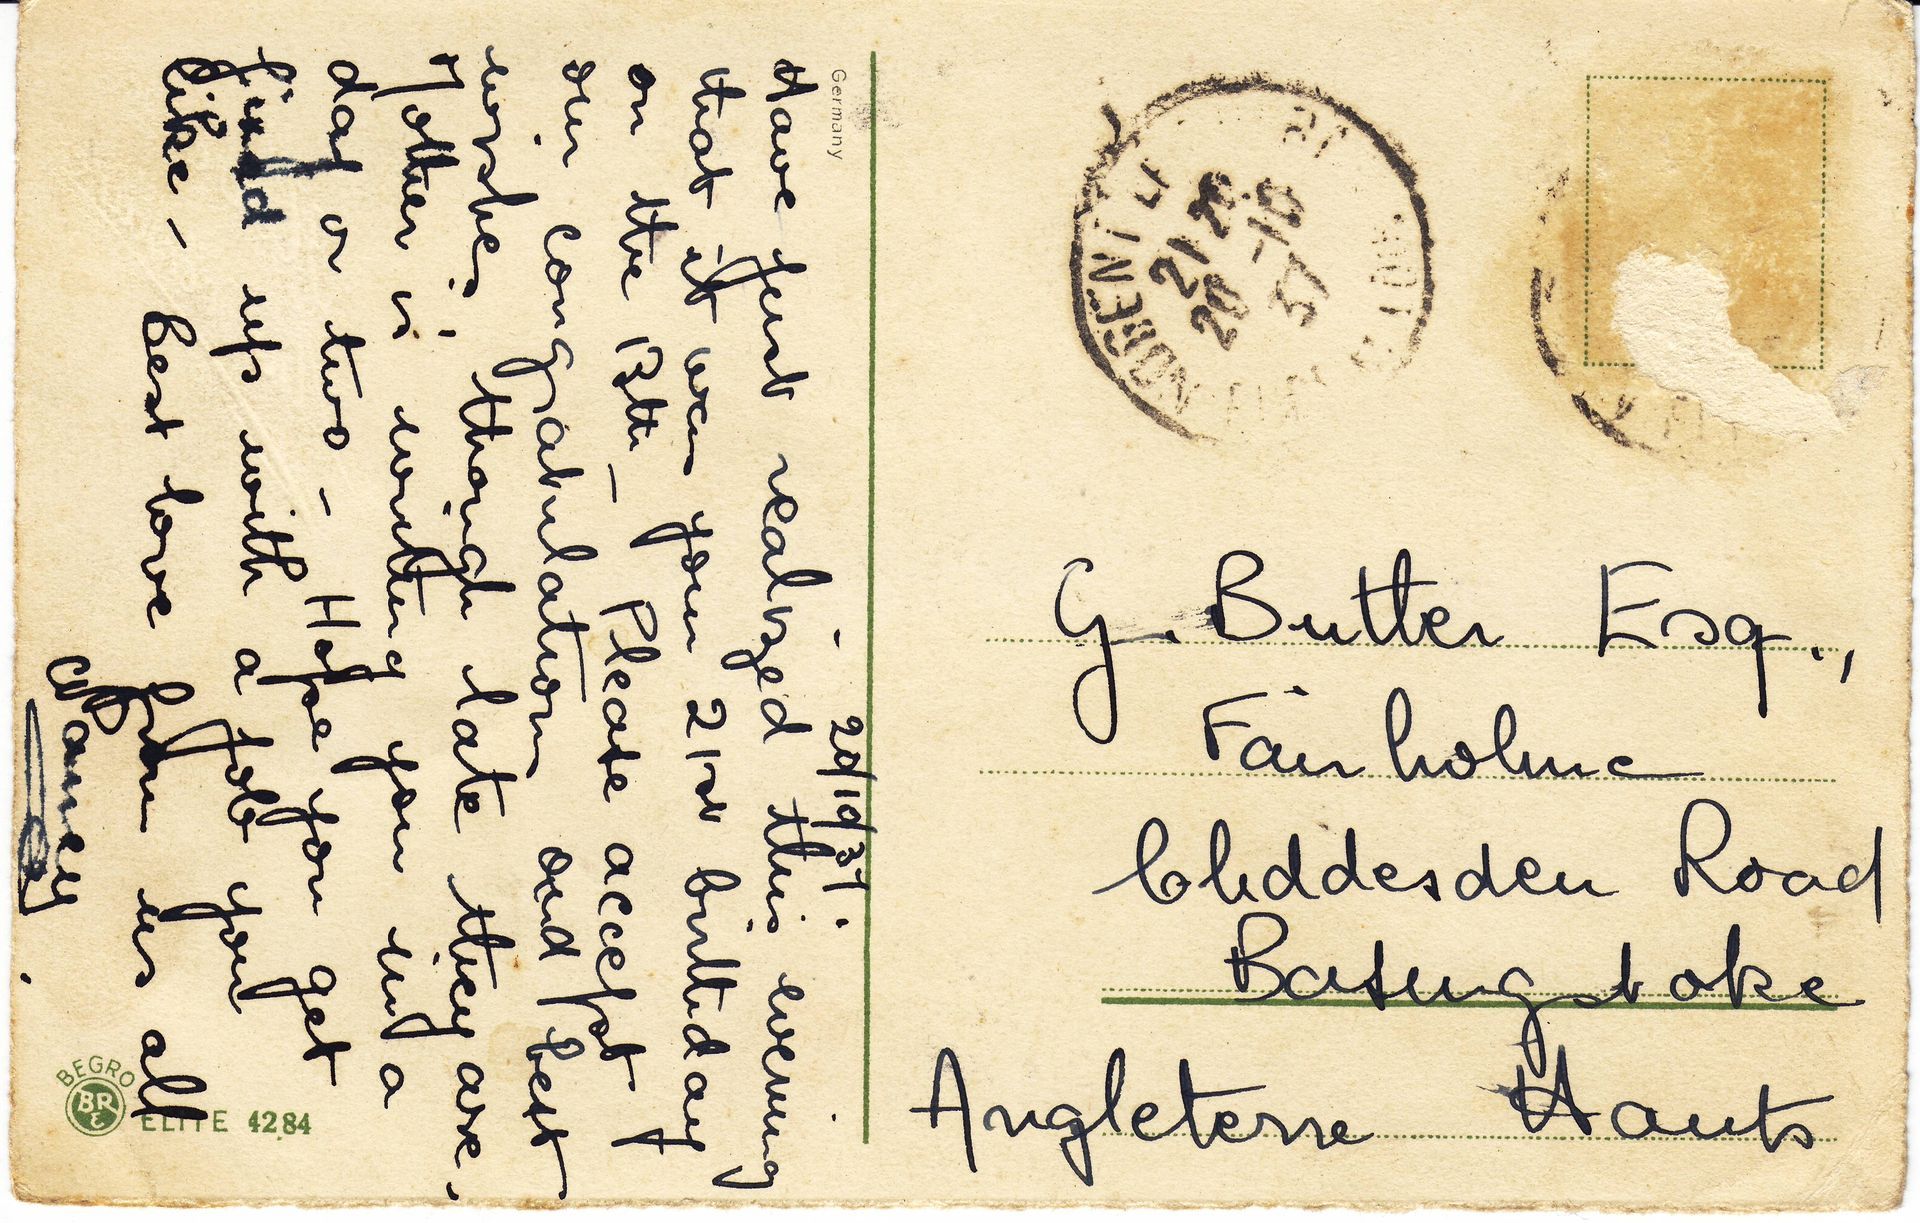 Germany
20/10/37.
Have just realized this evening
that it was your 21st birthday
on the 13th – Please accept
our congratulations and best
wishes though late they are.
Mother is writing you in a
day or two – Hope you get
fixed up with a job you
like – Best love from us all
Nancy
BEGRO
BR
E
ELITE 4284
21 20
20 -10
37
G. Butler Esq.,
Fairholme
Cliddesden Road
Basingstoke
Angleterre Hants